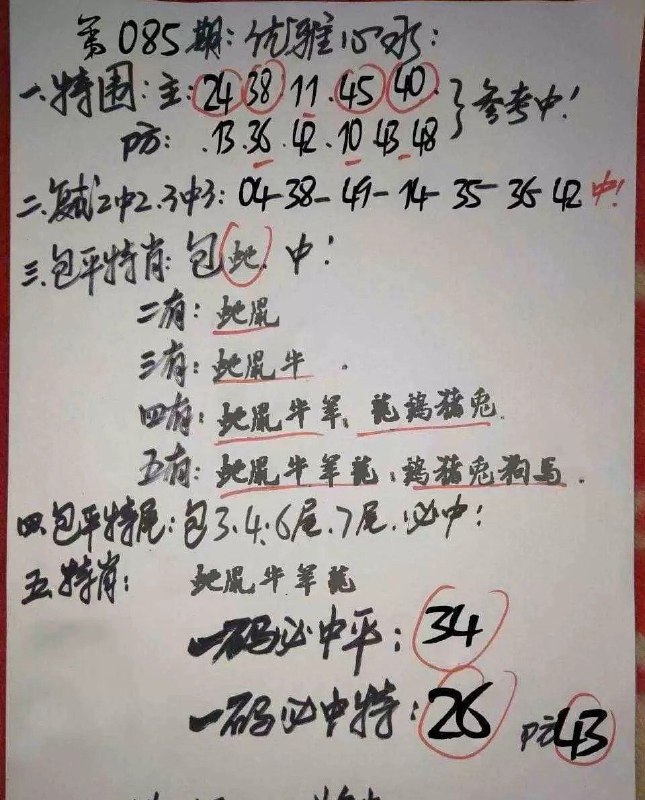 第085期:优雅心水:
一.特围:主:24 38 11 45 40. 参考中!
防: .13.36.42.10 43 48
二.复式2中2.3中3:04-38-49-14-35-36 42 中!
三.包平特肖:包蛇.中!
二有:蛇鼠
三有:蛇鼠牛.
四有:蛇鼠牛羊、龍鷄猪兎.
五有:蛇鼠牛羊龍、鷄猪兎狗馬.
四.包平特尾:包3.4.6尾.7尾.必中:
五.特肖: 蛇鼠牛羊龍
一码必中平:34
一码必中特:26 防43